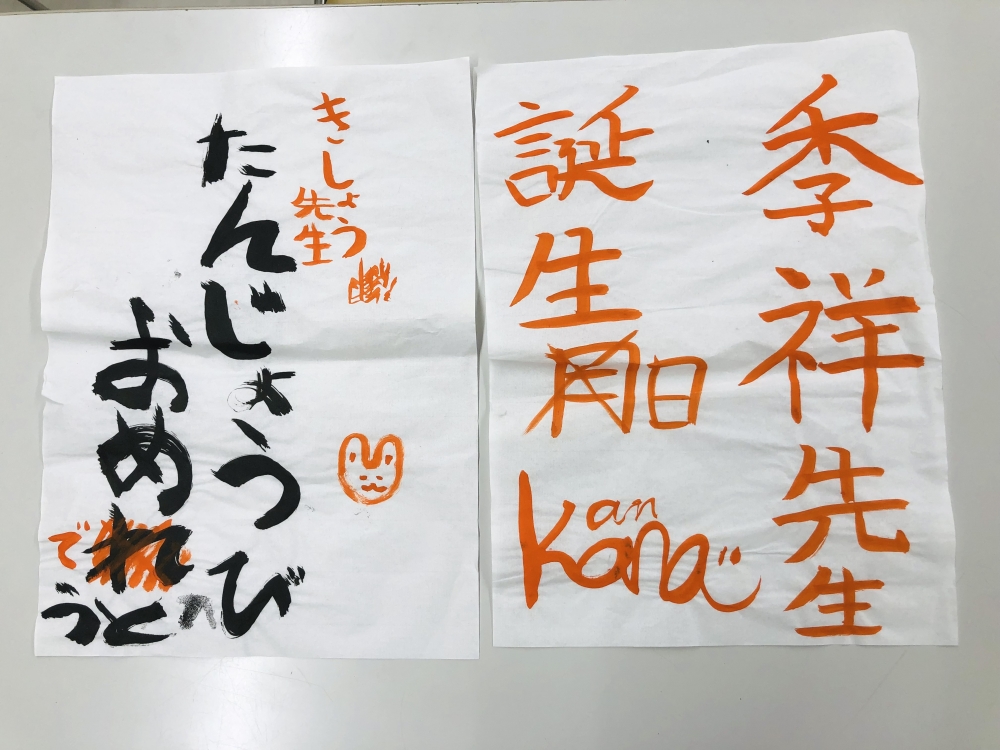 季祥先生
誕生日
Kana
an
きしょう
先生
たんじょうび
おめで
とう